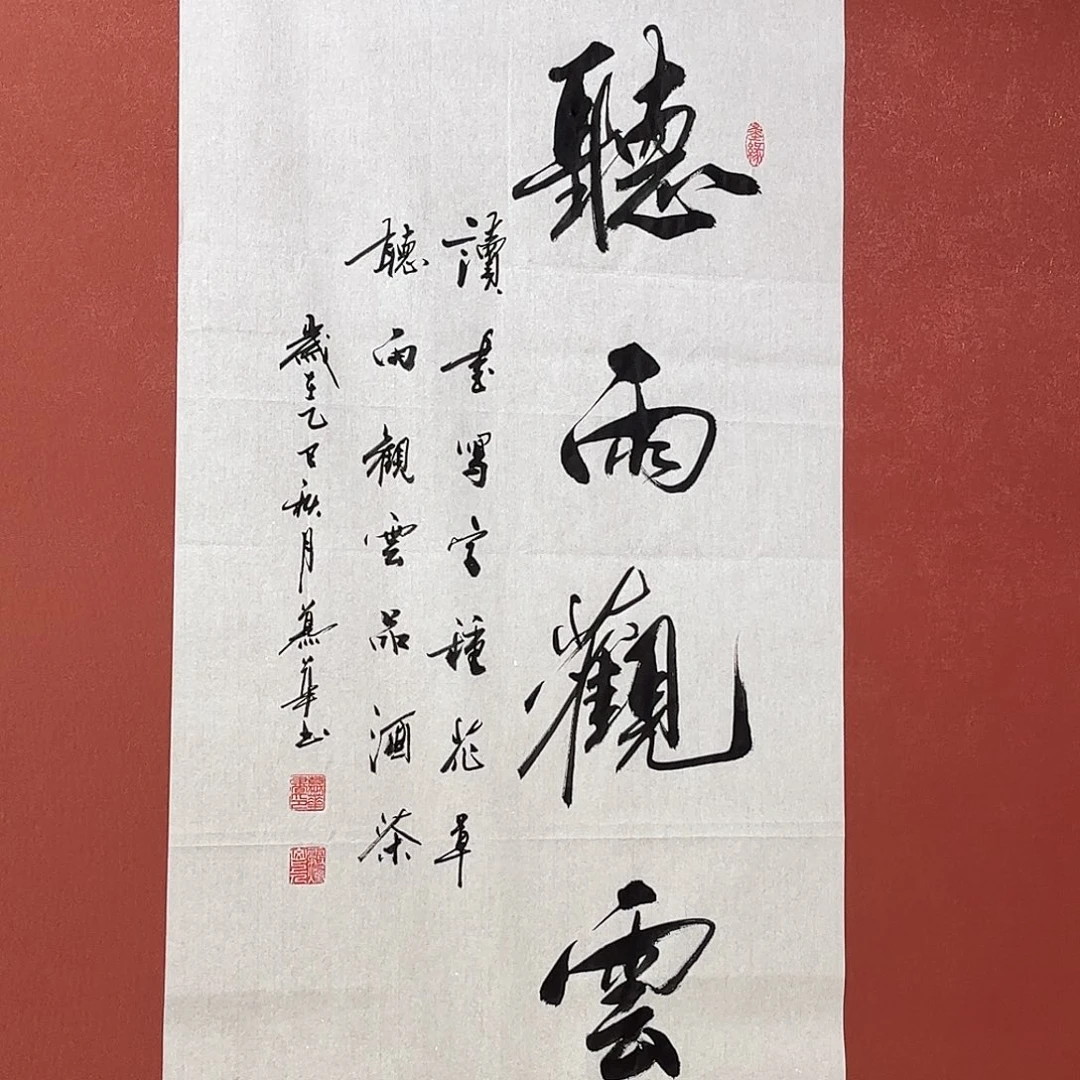 聽雨觀雲
讀書寫字種花草
聽雨觀雲品酒茶
歲在乙巳秋月慕華書